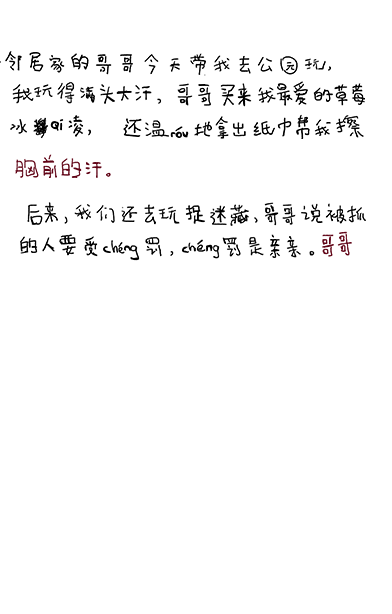 邻居家的哥哥今天带我去公园玩，
我玩得满头大汗，哥哥买来我最爱的草莓
冰qi凌，还温róu地拿出纸巾帮我擦
胸前的汗。
后来，我们还去玩捉迷藏，哥哥说被抓
的人要受chéng罚，chéng罚是亲亲。哥哥